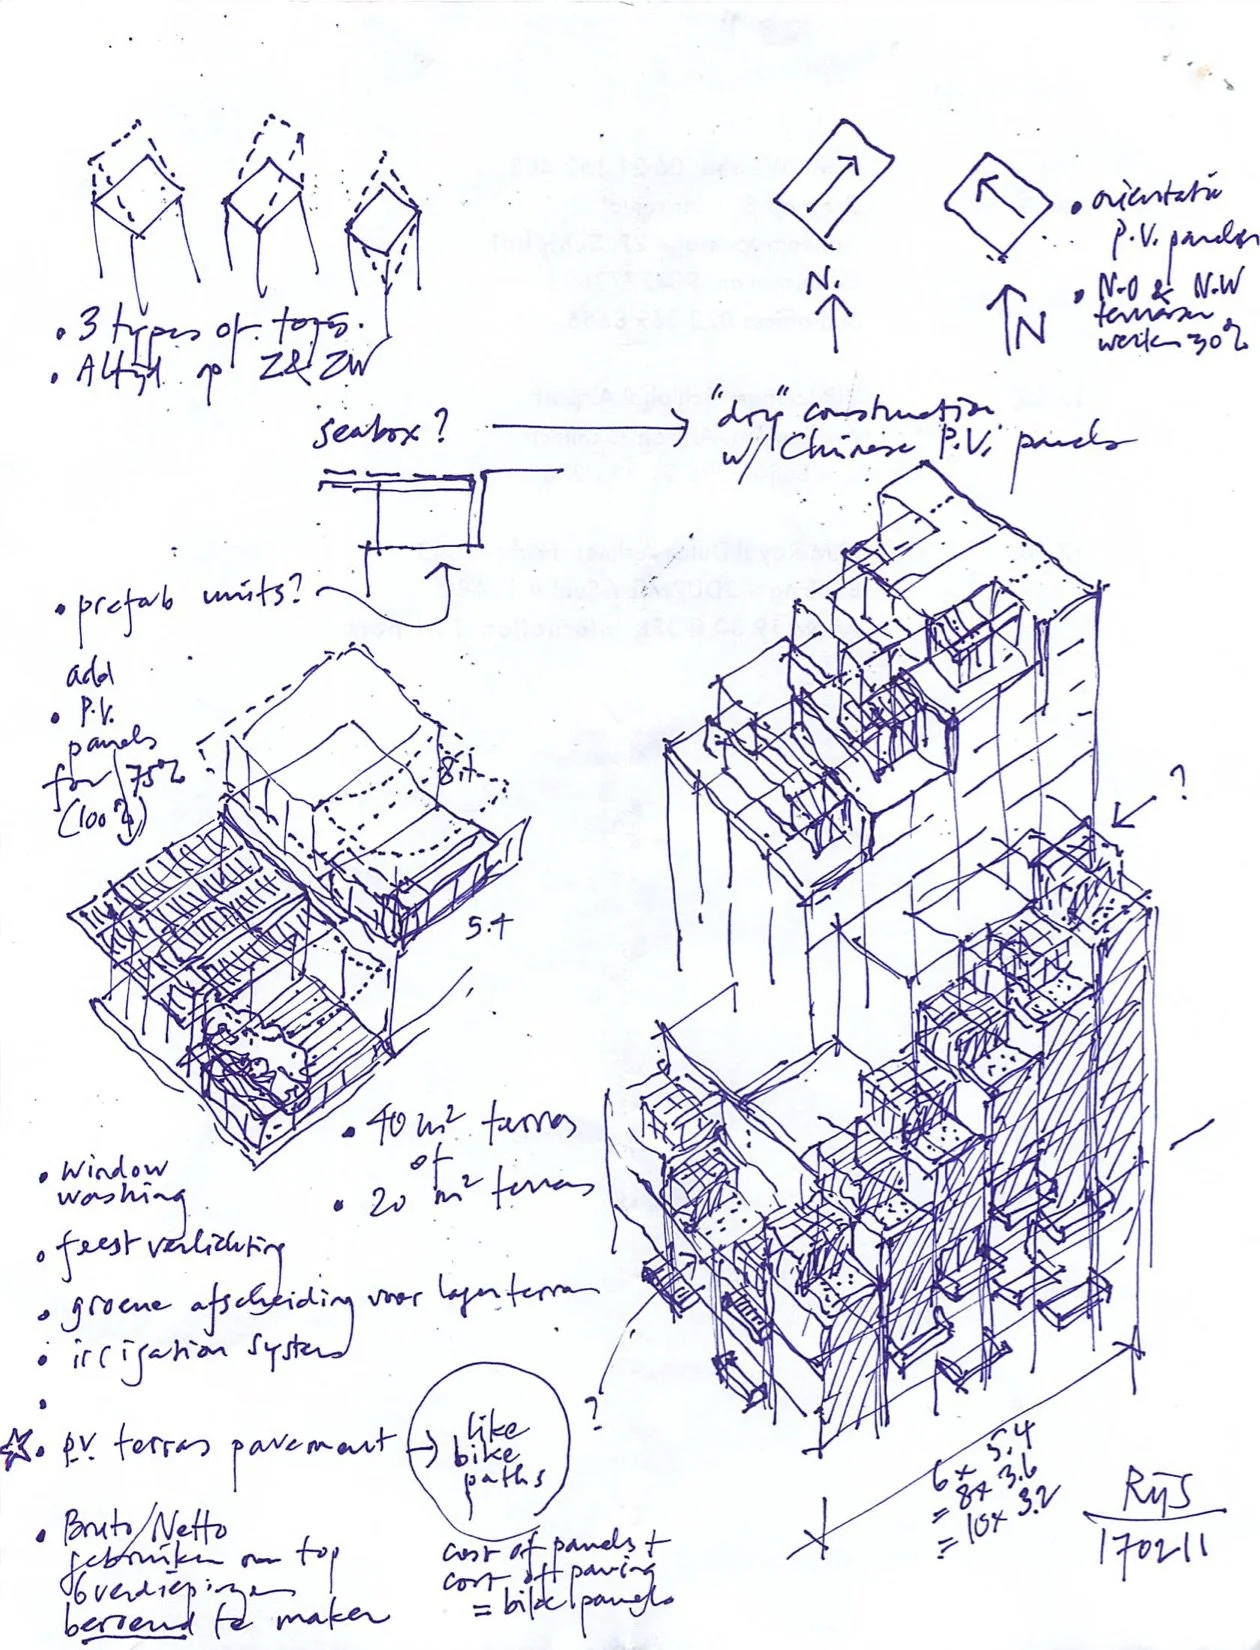 N.
N
• orientatie
P.V. panelen
• N-O & N.W
terrassen
werken 30%
• 3 types of tops.
• Altijd op Z & ZW
seabox?
"dry" construction
w/ Chinese P.V. panels
• prefab units?
add
• P.V.
panels
for 75%
(100%)
8it
5.4
?
• 40 m² terras
of
• 20 m² terras
• window
washing
• feestverlichting
• groene afscheiding voor lagen terras
• irrigation system
•
• P.V. terras pavement
like
bike
paths
?
• Bruto/Netto
gebruiken om top
6 verdiepingen
beroend te maken
cost of panels +
cost off paving
= bikepanels
6 x 5.4
= 8x 3.6
= 10x 3.2
RijS
170211